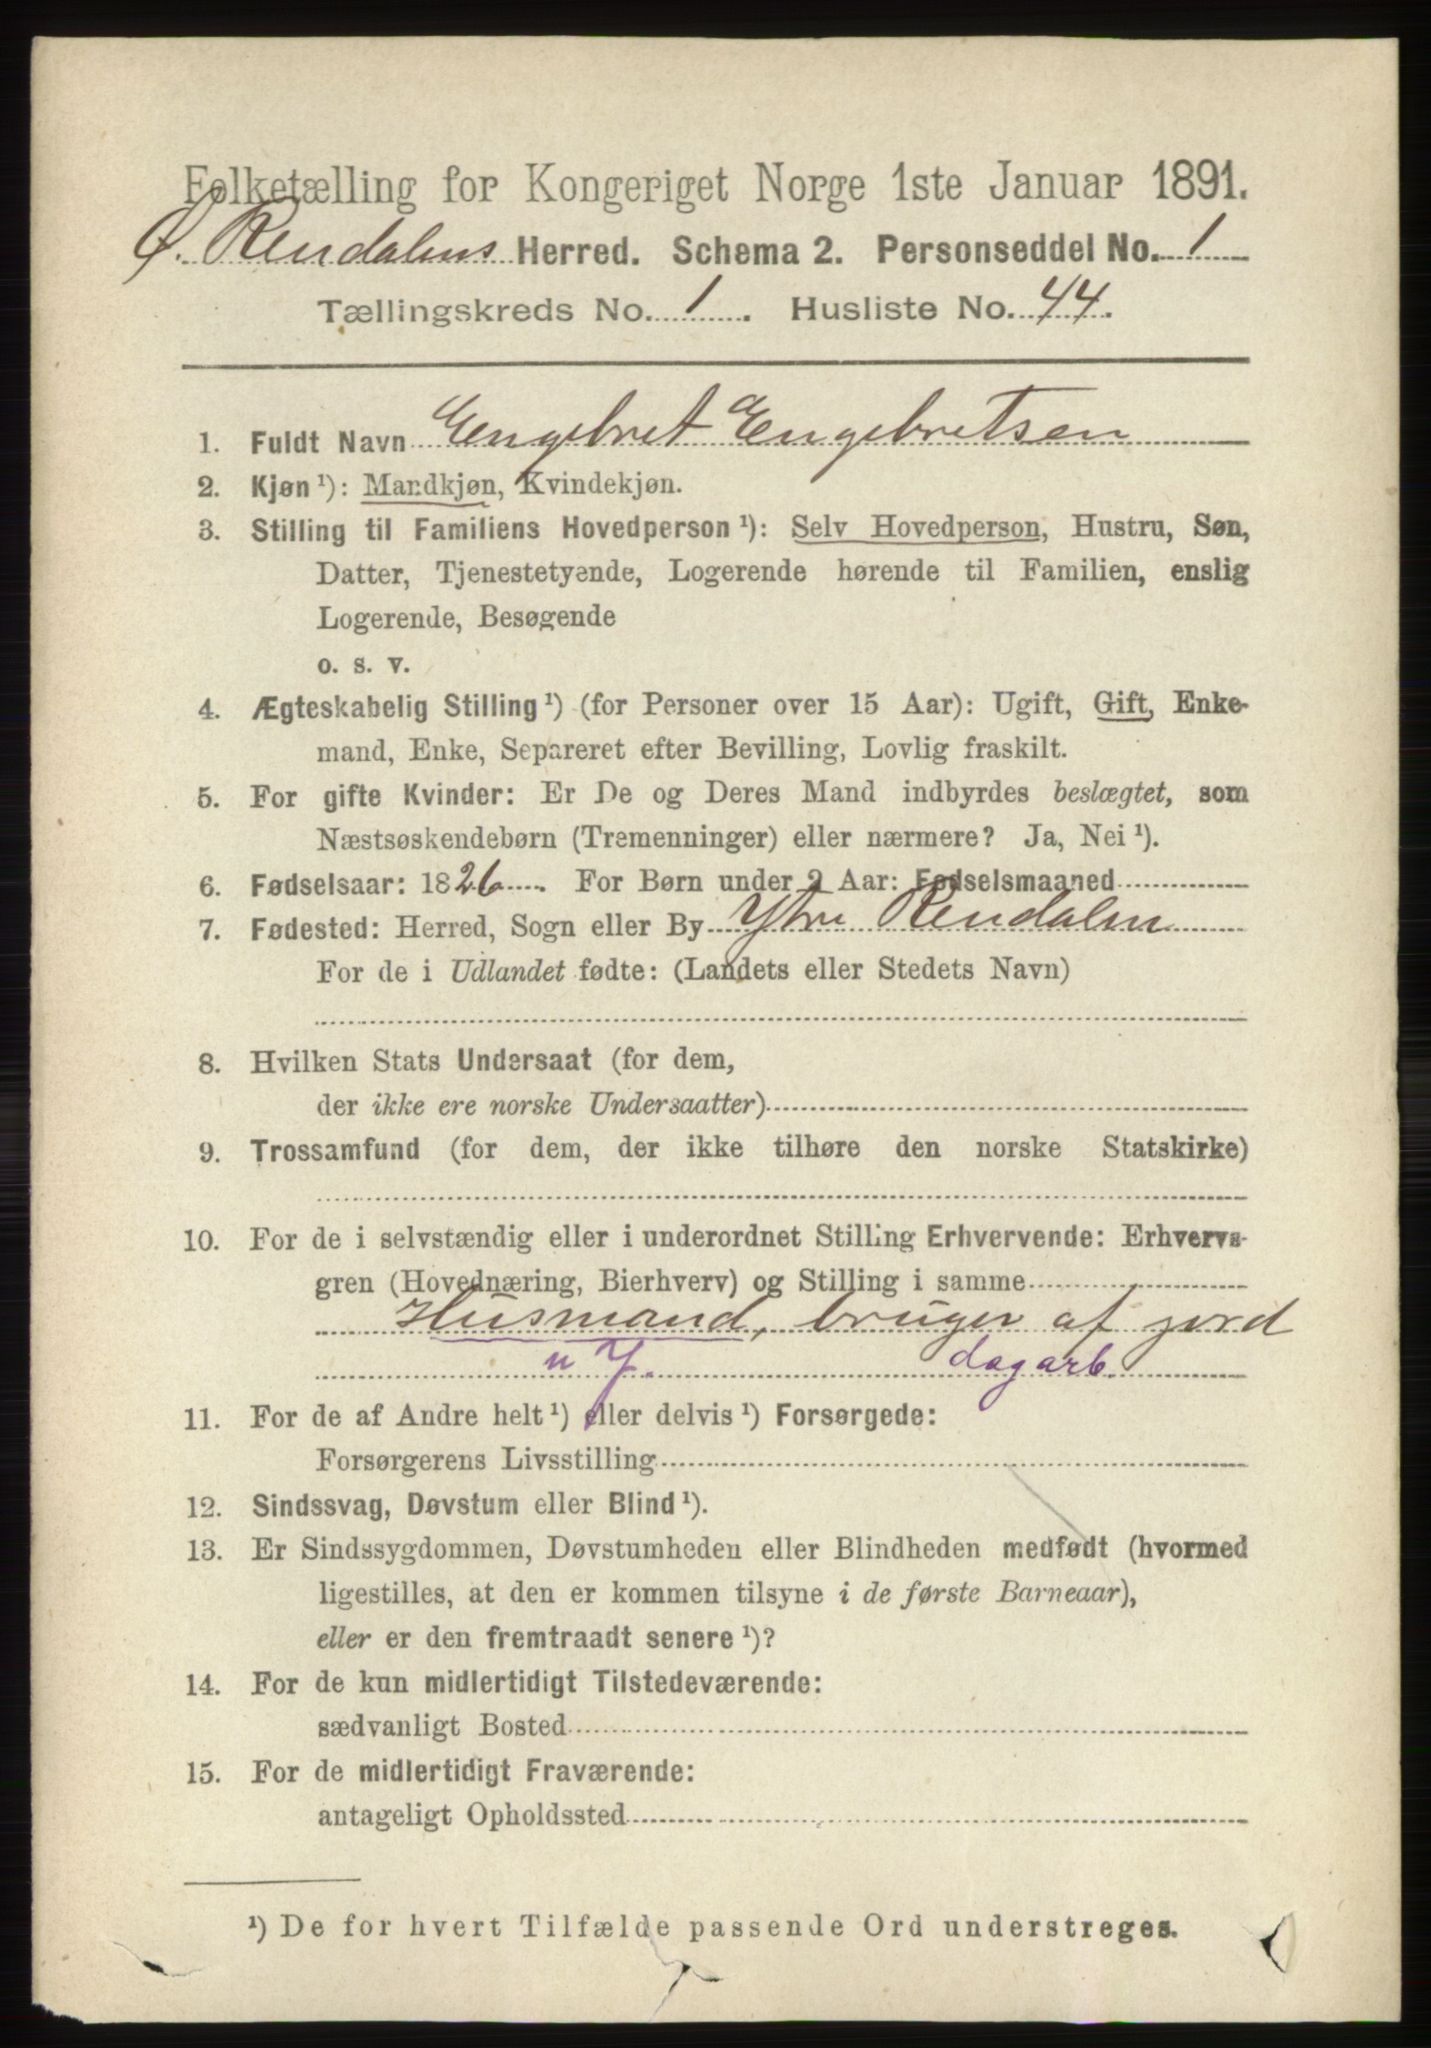 Folketælling for Kongeriget Norge 1ste Januar 1891.
Ø. Rendalens Herred. Schema 2. Personseddel No. 1
Tællingskreds No. 1. Husliste No. 44.
1. Fuldt Navn Engebret Engebretsen
2. Kjøn ¹): Mandkjøn, Kvindekjøn.
3. Stilling til Familiens Hovedperson ¹): Selv Hovedperson, Hustru, Søn,
Datter, Tjenestetyende, Logerende hørende til Familien, enslig
Logerende, Besøgende
o. s. v.
4. Ægteskabelig Stilling ¹) (for Personer over 15 Aar): Ugift, Gift, Enke-
mand, Enke, Separeret efter Bevilling, Lovlig fraskilt.
5. For gifte Kvinder: Er De og Deres Mand indbyrdes beslægtet, som
Næstsøskendebørn (Tremenninger) eller nærmere? Ja, Nei ¹).
6. Fødselsaar: 1826. For Børn under 2 Aar: Fødselsmaaned
7. Fødested: Herred, Sogn eller By Ytre Rendalen
For de i Udlandet fødte: (Landets eller Stedets Navn)
8. Hvilken Stats Undersaat (for dem,
der ikke ere norske Undersaatter)
9. Trossamfund (for dem, der ikke tilhøre den norske Statskirke)
10. For de i selvstændig eller i underordnet Stilling Erhvervende: Erhvervs-
gren (Hovednæring, Bierhverv) og Stilling i samme
Husmand, bruger af jord
u J. dagarb.
11. For de af Andre helt ¹) eller delvis ¹) Forsørgede:
Forsørgerens Livsstilling
12. Sindssvag, Døvstum eller Blind ¹).
13. Er Sindssygdommen, Døvstumheden eller Blindheden medfødt (hvormed
ligestilles, at den er kommen tilsyne i de første Barneaar),
eller er den fremtraadt senere ¹)?
14. For de kun midlertidigt Tilstedeværende:
sædvanligt Bosted
15. For de midlertidigt Fraværende:
antageligt Opholdssted
¹) De for hvert Tilfælde passende Ord understreges.